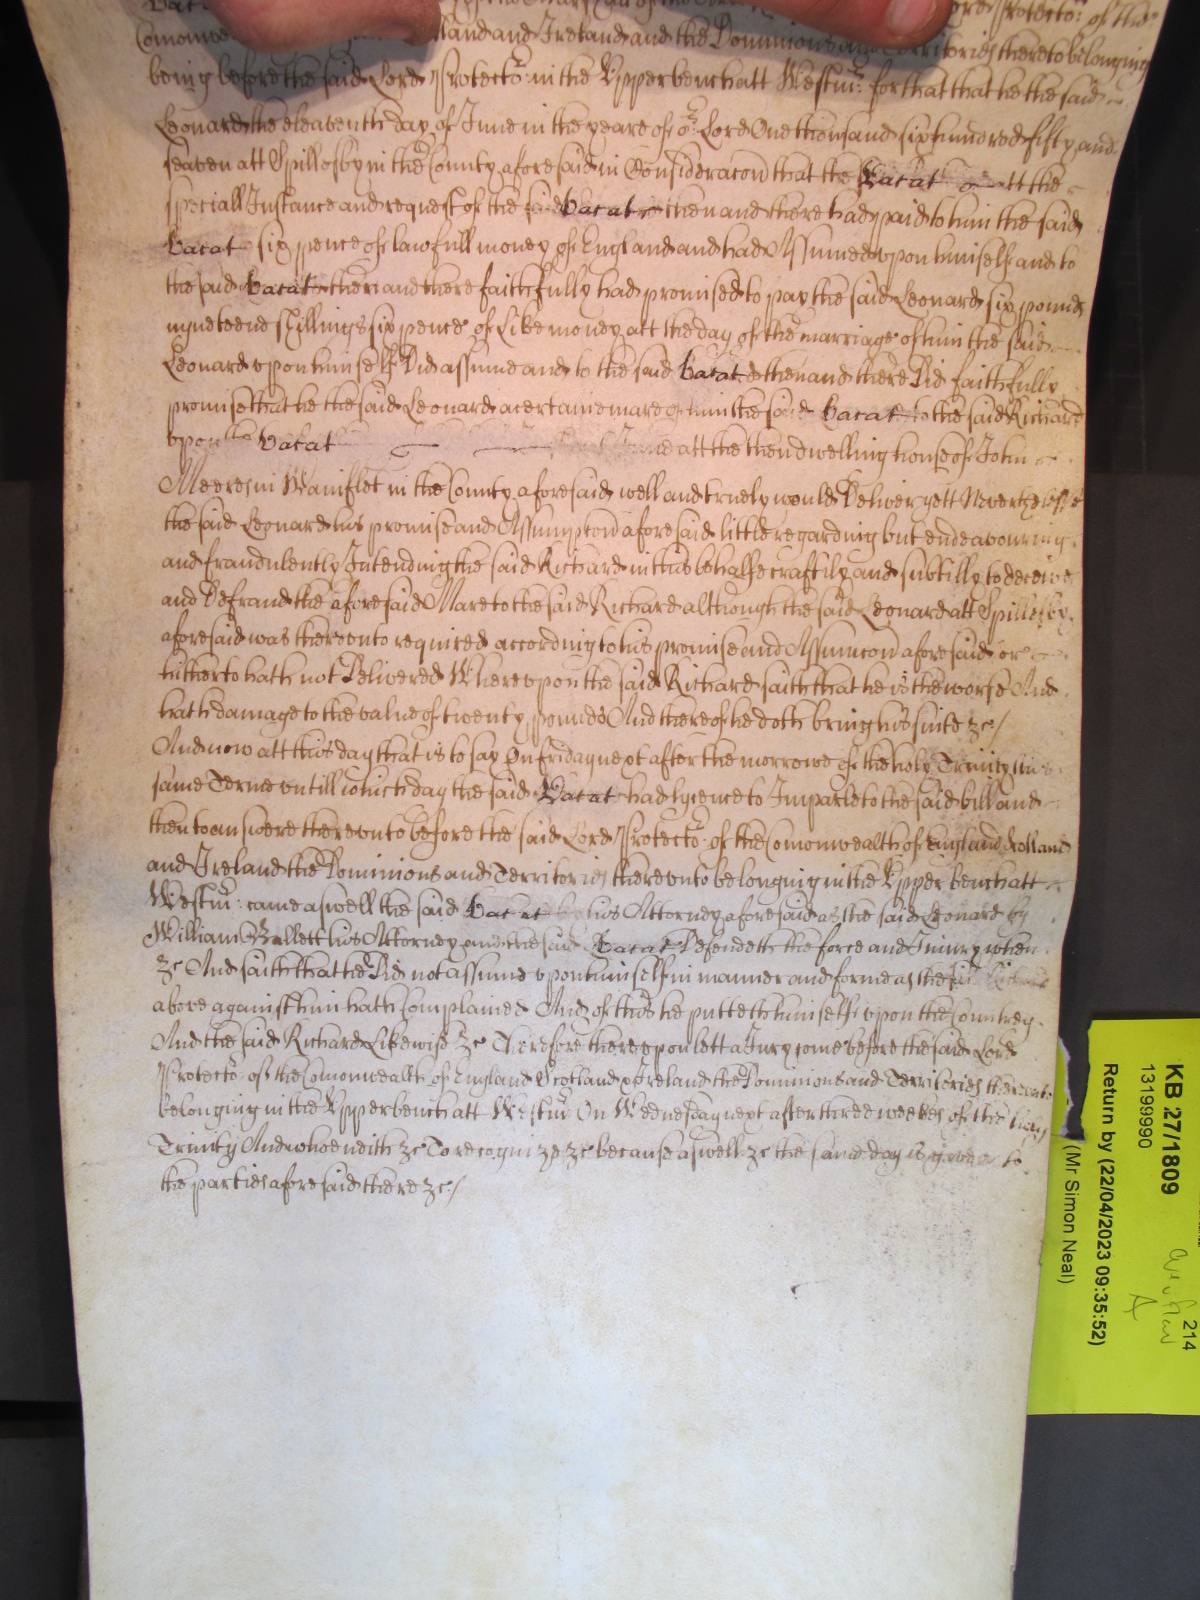 Lord Protector: of the
Comonwe land and Ireland and the Dominions and Territories thereto belonging
being before the said Lord Protector: in the Upper bench att Westmr: for that that he the said
Leonard the eleaventh day of June in the yeare of or Lord One thousand six hundred fifty and
seaven att Spillesby in the County aforesaid in Consideracon that the Vacat att the
speciall Instance and request of the said Vacat then and there had paid to him the said
Vacat six pence of lawfull money of England and had Assumed upon himself and to
the said Vacat then and there faithfully had promised to pay the said Leonard six pound
nyneteene shillings six pence of Like money att the day of the marriage of him the said
Leonard upon himself Did assume and to the said Vacat then and there Did faithfully
promise that he the said Leonard a certaine mare of him the said Vacat to the said Richard
upon the Vacat att the then dwelling house of John
Meeres in Wainflet in the County aforesaid well and truely would Deliver yett Nevertheless
the said Leonard his promise and Assumpcon aforesaid little regarding but endeavouring
and fraudulently Intending the said Richard in this behalfe craftily and subtilly to deceive
and Defraud the aforesaid Mare to the said Richard although the said Leonard att Spillesby
aforesaid was thereunto required according to his promise and Assumcon aforesaid or
hitherto hath not Delivered Whereupon the said Richard saith that he is the worse And
hath damage to the value of twenty pounds And thereof he doth bring his suite &c/
And now att this day that is to say On friday next after the morrowe of the holy Trinity this
same Terme untill which day the said Vacat had lycence to Imparle to the said bill and
then to answere thereunto before the said Lord Protector: of the Comonwealth of England Scotland
and Ireland the Dominions and Territories thereunto belonging in the Upper bench att
Westmr: came aswell the said Vacat by his Attorney aforesaid as the said Leonard by
William Ballett his Attorney and the said Vacat Defendeth the force and Injury when
&c And saith that he Did not assume upon himself in manner and forme as the said Richard
above against him hath Complained And of this he putteth himself upon the Countrey
And the said Richard Likewise &c Therefore thereupon lett a Jury come before the said Lord
Protector: of the Comonwealth of England Scotland & Ireland the Dominions and Territories thereunto
belonging in the Upper bench att Westmr On Wednesday next after three weekes of the holy
Trinity And who neith &c To recognize &c because aswell &c the same day is given to
the parties aforesaid there &c/
KB 27/1809
13199990
Return by (22/04/2023 09:35:52)
(Mr Simon Neal)
214